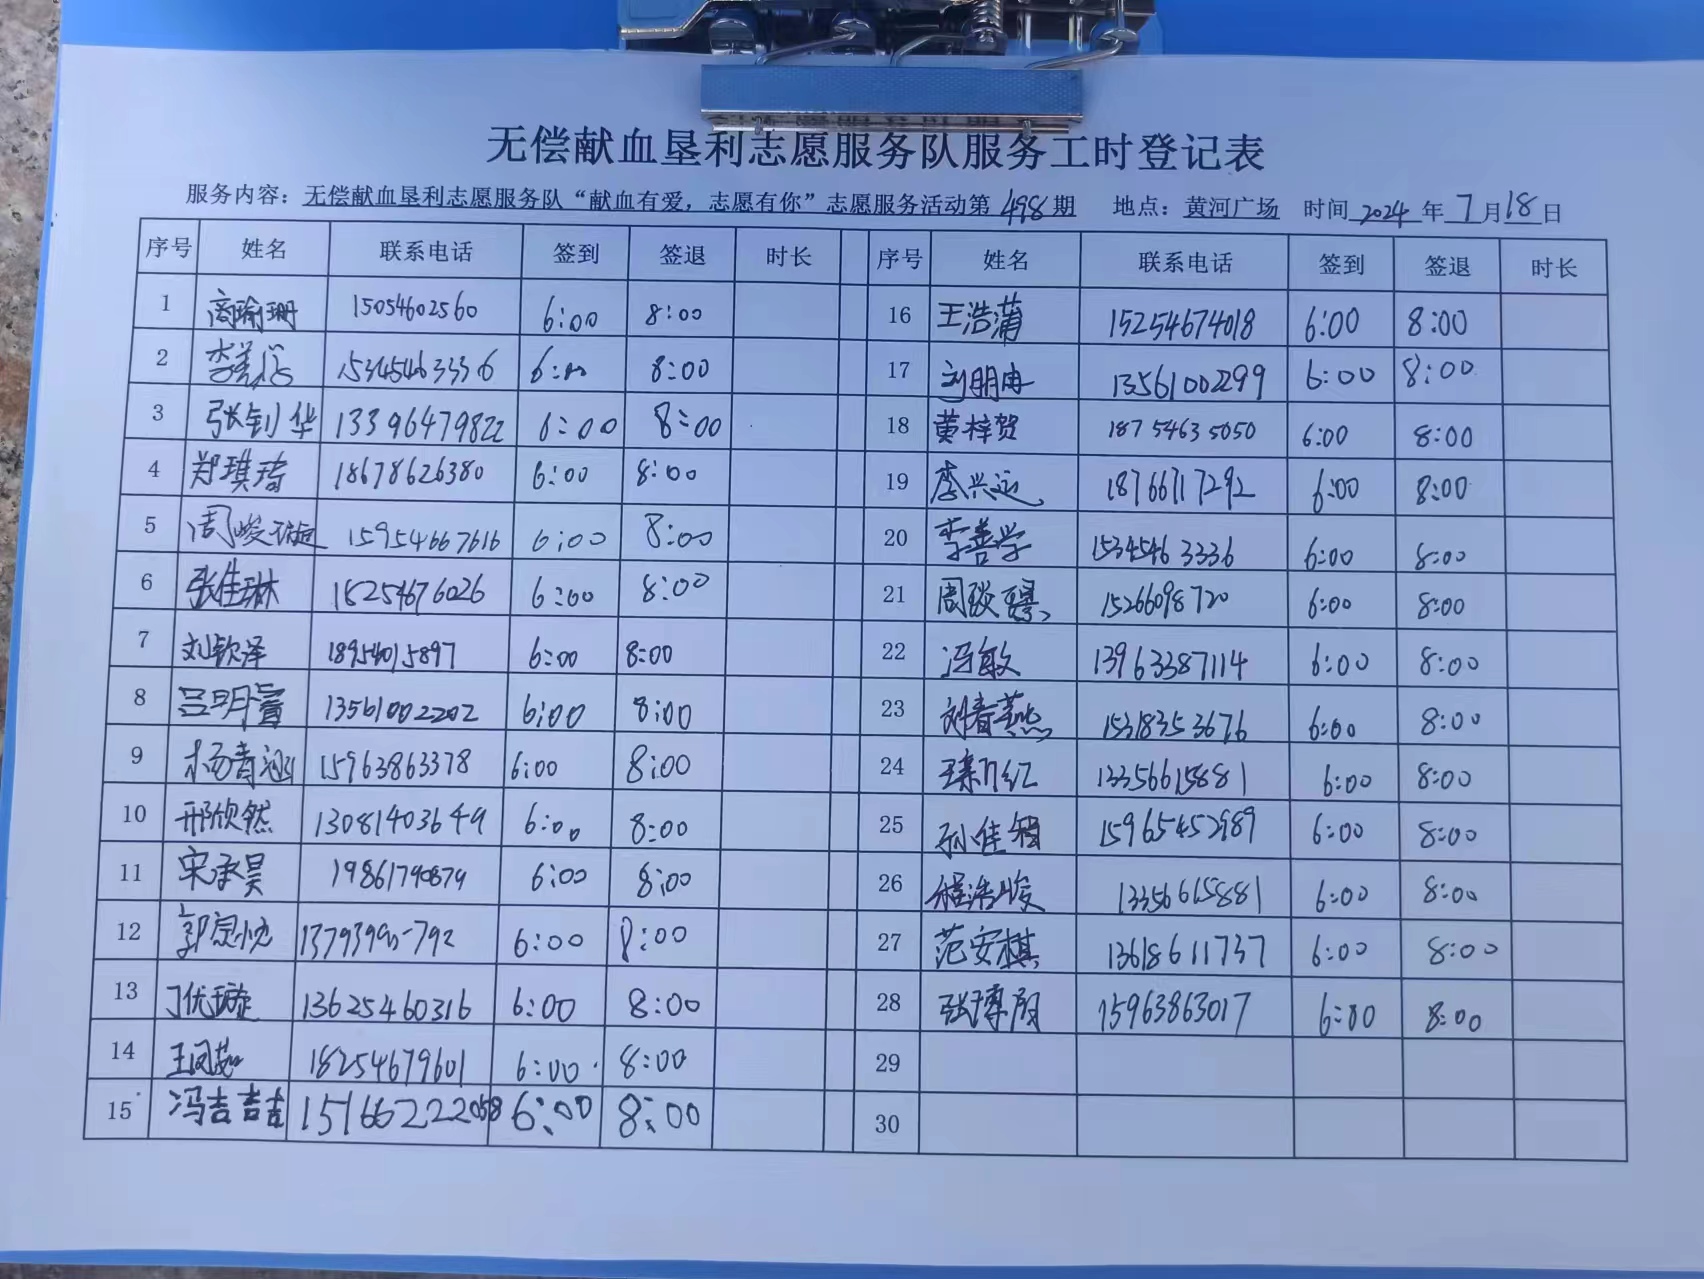 无偿献血垦利志愿服务队服务工时登记表
服务内容：无偿献血垦利志愿服务队“献血有爱，志愿有你”志愿服务活动第 498 期 地点：黄河广场 时间 2024 年 7 月 18 日
序号 姓名 联系电话 签到 签退 时长 序号 姓名 联系电话 签到 签退 时长
1 商瑜珊 15054602560 6:00 8:00 16 王浩蒲 15254674018 6:00 8:00
2 15345463336 6:00 8:00 17 刘明冉 13561002299 6:00 8:00
3 张钊华 13396479822 6:00 8:00 18 黄梓贺 18754635050 6:00 8:00
4 郑琪琦 18678626380 6:00 8:00 19 李兴远 18766717292 6:00 8:00
5 周峻璇 15954667616 6:00 8:00 20 李善学 15345463336 6:00 8:00
6 张佳琳 15254676026 6:00 8:00 21 15266098720 6:00 8:00
7 刘钦泽 18954015897 6:00 8:00 22 冯敏 13963387114 6:00 8:00
8 吕明萱 13561002202 6:00 8:00 23 刘春燕 15318353676 6:00 8:00
9 杨青涵 15963863378 6:00 8:00 24 13356615881 6:00 8:00
10 邢欣然 13081403649 6:00 8:00 25 孙佳程 15965452989 6:00 8:00
11 宋承昊 19861790879 6:00 8:00 26 程浩峻 13356615881 6:00 8:00
12 6:00 8:00 27 范安棋 13618611737 6:00 8:00
13 丁优璇 13625460316 6:00 8:00 28 张博阳 15963863017 6:00 8:00
14 王凤茹 18254679601 6:00 8:00 29
15 冯吉吉吉 15166222058 6:00 8:00 30